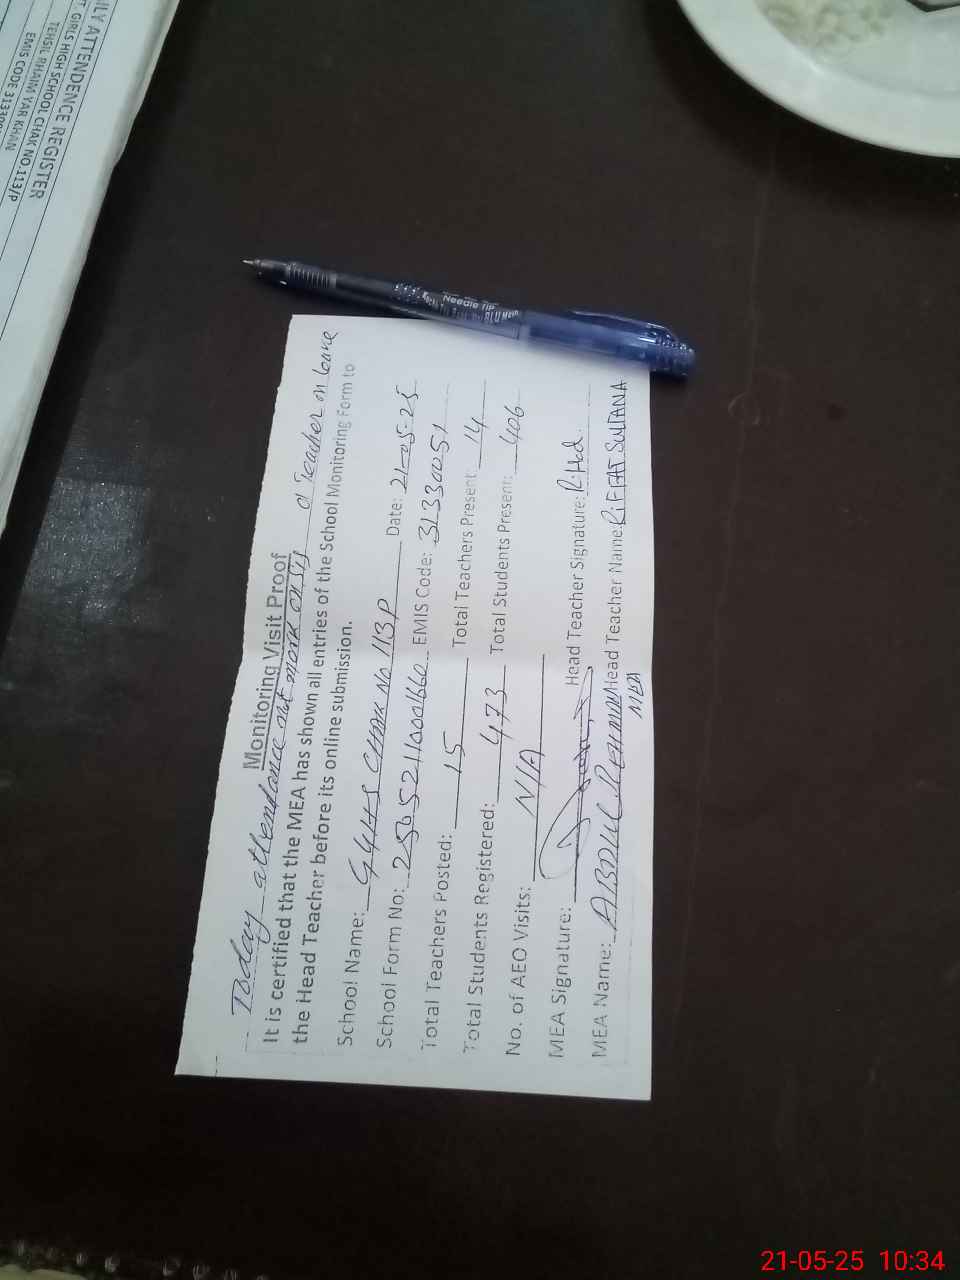 ILY ATTENDENCE REGISTER
T. GIRLS HIGH SCHOOL CHAK NO.113/P
TEHSIL RHAIM YAR KHAN
EMIS CODE 313300
Needle Tip
Monitoring Visit Proof
Today attendance not mark on SIS 01 Teacher on leave
It is certified that the MEA has shown all entries of the School Monitoring Form to
the Head Teacher before its online submission.
School Name: GGHS CHAK No 113P Date: 21-05-25
School Form No: 25052110001660 EMIS Code: 31330051
Total Teachers Posted: 15 Total Teachers Present: 14
Total Students Registered: 473 Total Students Present: 406
No. of AEO Visits: N/A
MEA Signature: Head Teacher Signature: Riffat
MEA Name: ABDUL REHMAN Head Teacher Name: RIFFAT SULTANA
MEA
21-05-25 10:34